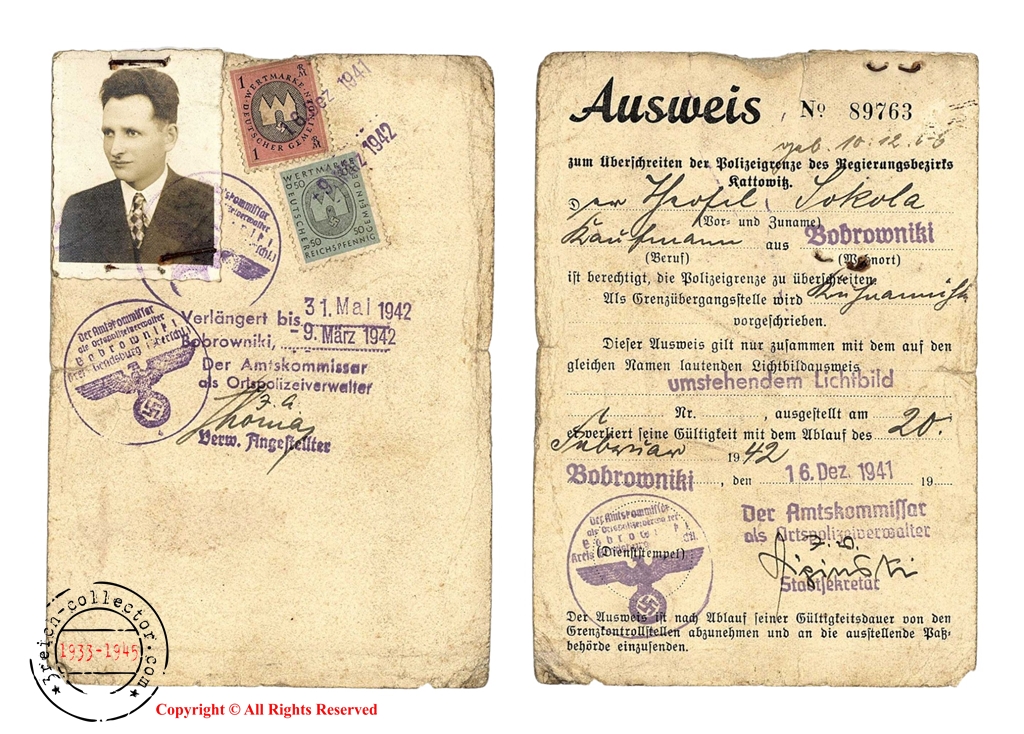 1 RM
WERTMARKE
DEUTSCHER GEMEINDEN
1
16. Dez. 1941
WERTMARKE
50
DEUTSCHER GEMEINDEN
50 50
REICHSPFENNIG
1942
Amtskommissar
Ortspolizeiverwalter
Der Amtskommissar
als Ortspolizeiverwalter
Bobrowniki
Verlängert bis 31. Mai 1942
Bobrowniki, -9. März 1942
Der Amtskommissar
als Ortspolizeiverwalter
Verw. Angestellter
Ausweis No 89763
geb. 10.12.
zum Überschreiten der Polizeigrenze des Regierungsbezirks
Kattowitz.
Der Theofil Sokola
(Vor- und Zuname)
Kaufmann aus Bobrowniki
(Beruf) (Wohnort)
ist berechtigt, die Polizeigrenze zu überschreiten.
Als Grenzübergangsstelle wird
vorgeschrieben.
Dieser Ausweis gilt nur zusammen mit dem auf den
gleichen Namen lautenden Lichtbildausweis
umstehendem Lichtbild
Nr. , ausgestellt am
er verliert seine Gültigkeit mit dem Ablauf des 20.
Februar 1942
Bobrowniki, den 16. Dez. 1941 19
Der Amtskommissar
als Ortspolizeiverwalter
Stadtsekretär
Der Amtskommissar
als Ortspolizeiverwalter
(Dienststempel)
Der Ausweis ist nach Ablauf seiner Gültigkeitsdauer von den
Grenzkontrollstellen abzunehmen und an die ausstellende Paß-
behörde einzusenden.
3reich-collector.com
1933-1945
Copyright © All Rights Reserved